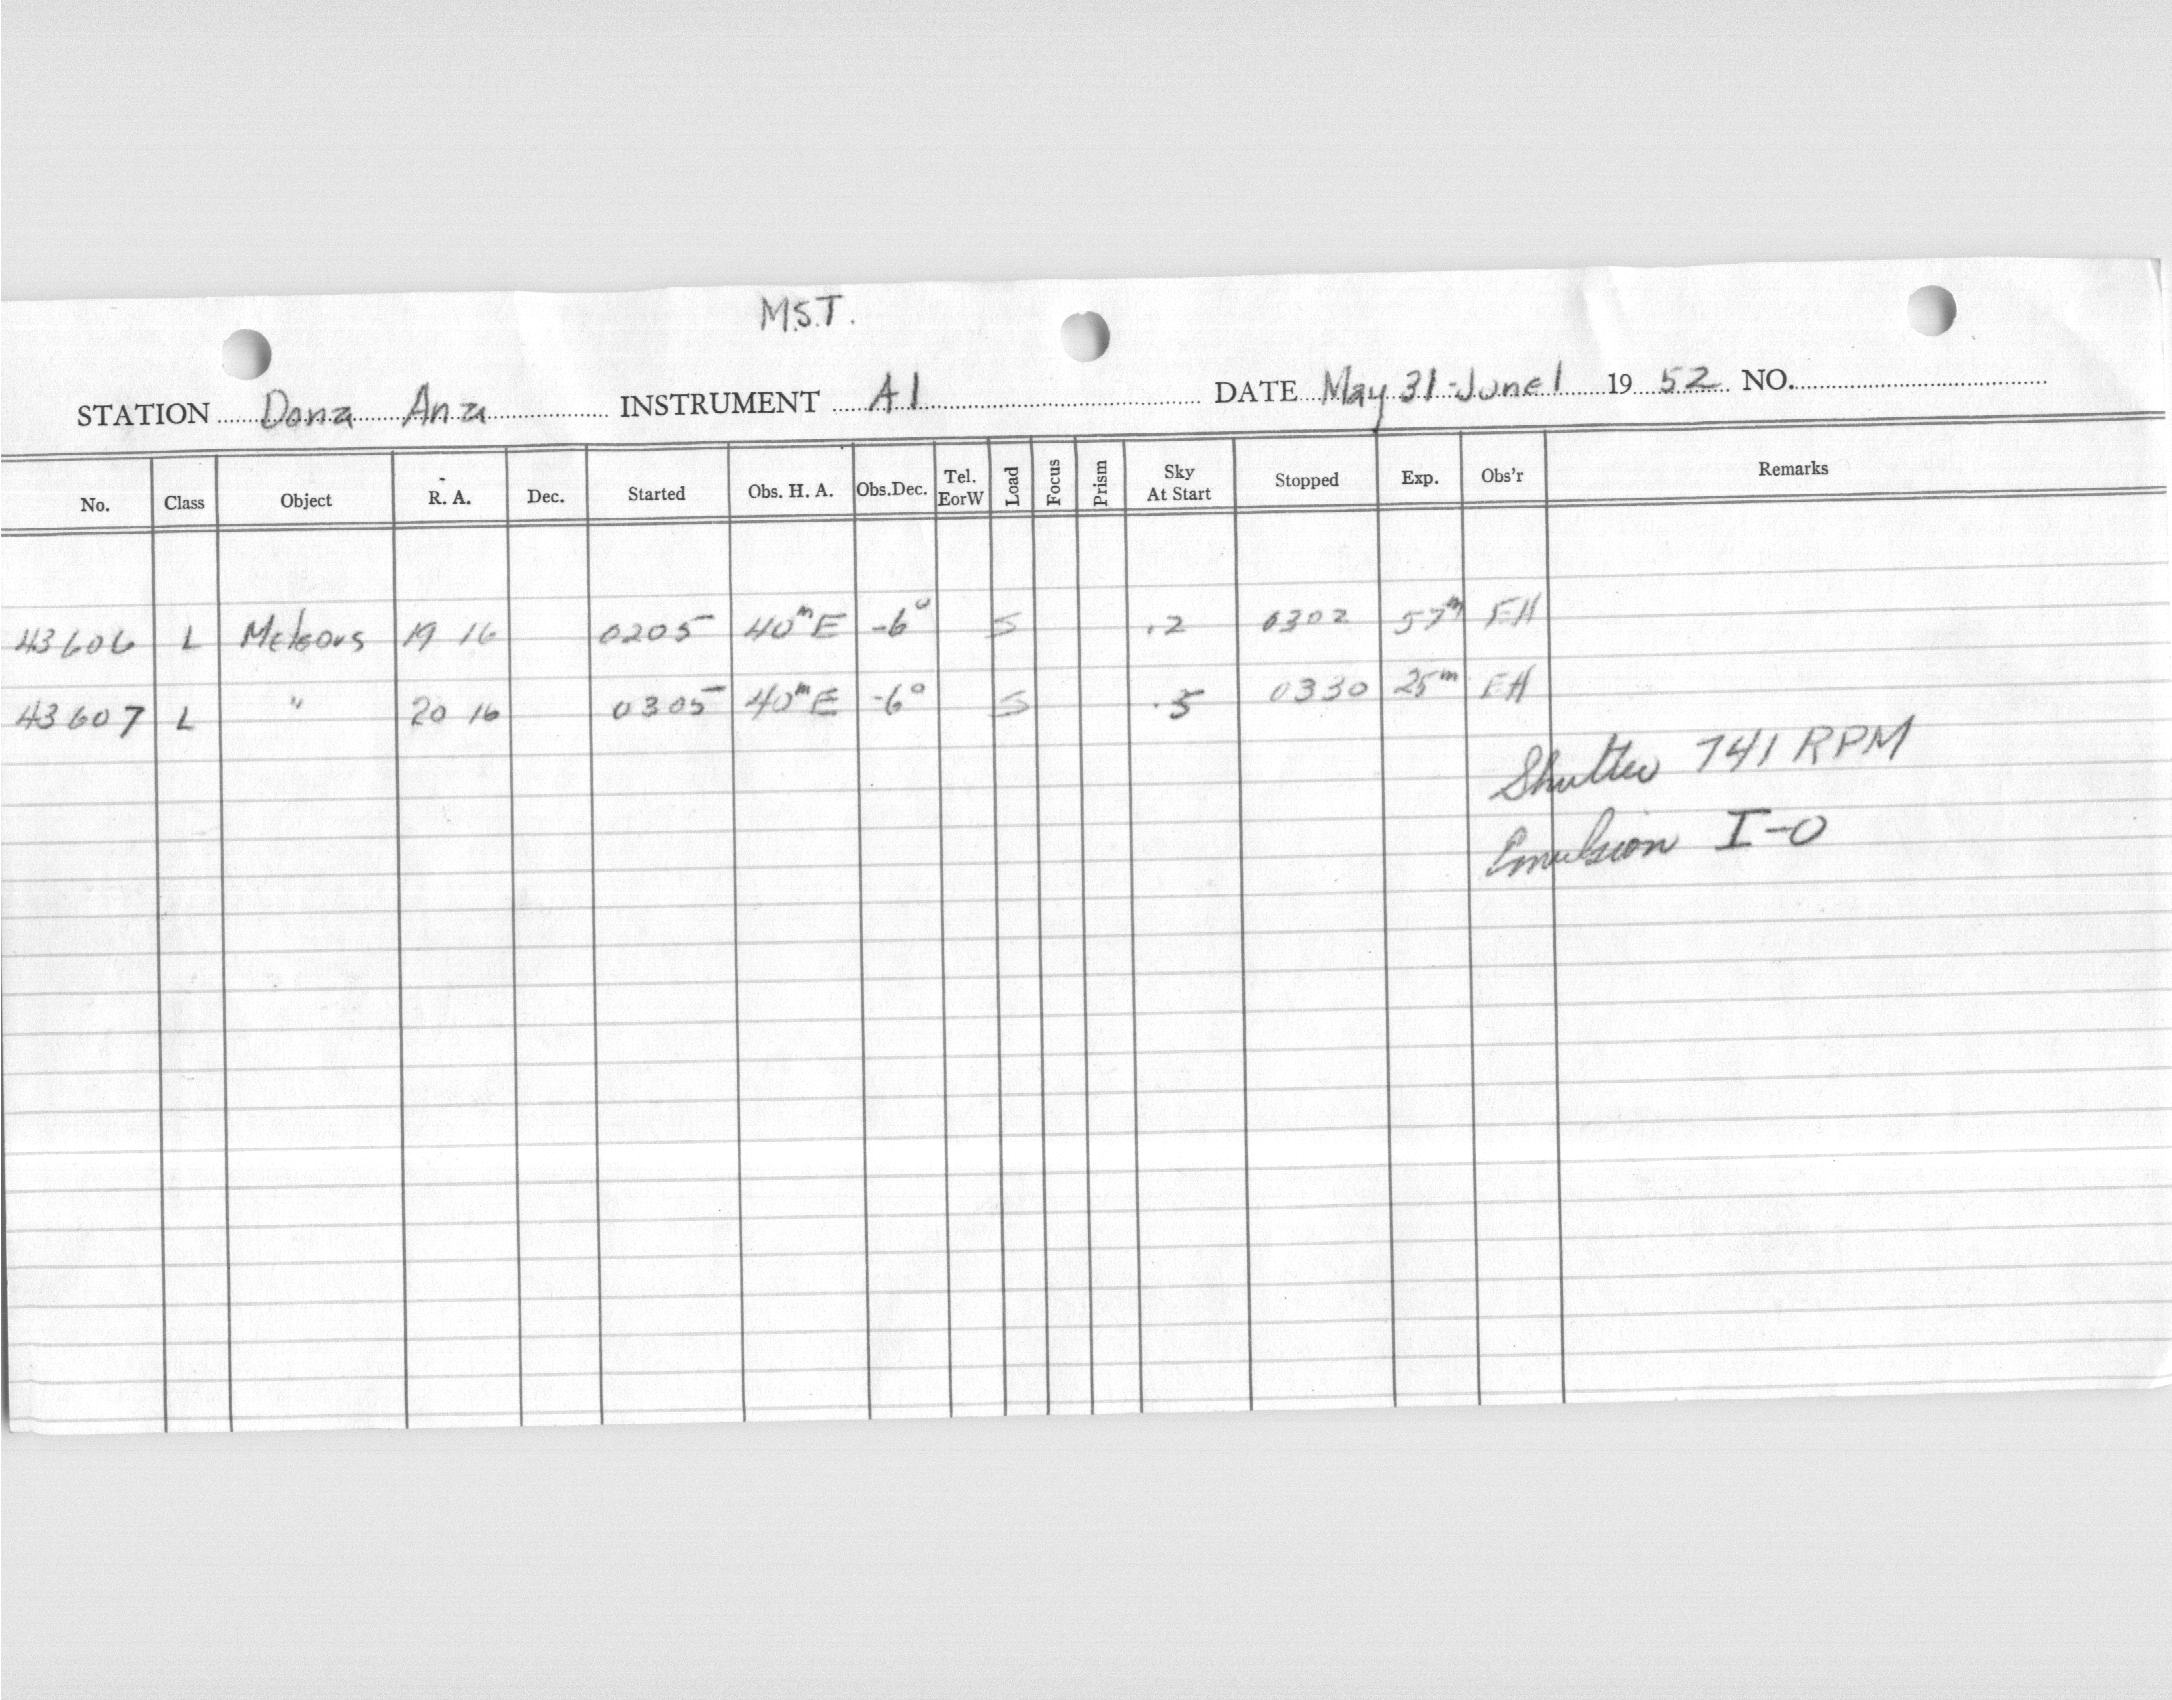 M.S.T.
STATION Dona Ana INSTRUMENT A1 DATE May 31-June 1 19 52 NO.
No. Class Object R. A. Dec. Started Obs. H. A. Obs.Dec. Tel. EorW Load Focus Prism Sky At Start Stopped Exp. Obs'r Remarks
43606 L Meteors 19 16 0205 40ᵐE -6° S .2 0302 57ᵐ EH
43607 L " 20 16 0305 40ᵐE -6° S .5 0330 25ᵐ EH
Shutter 741 RPM
Emulsion I-O